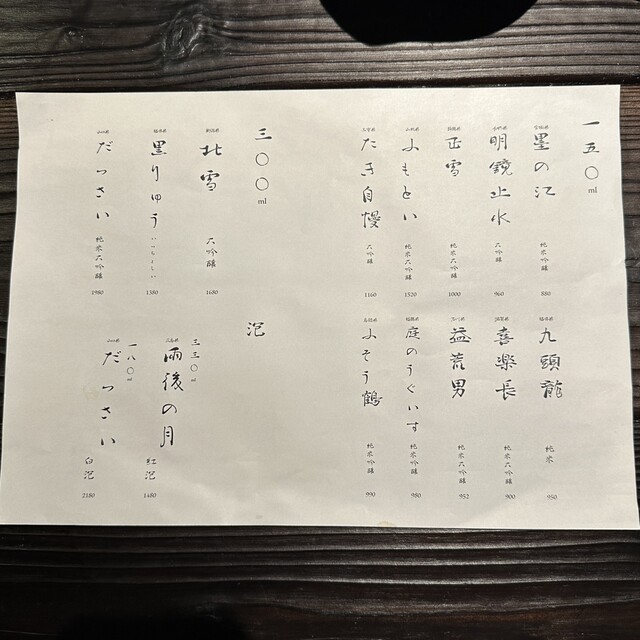 一五〇ml
宮城県 墨の江 純米吟醸 880
長野県 明鏡止水 大吟醸 960
静岡県 正雪 大吟醸 1000
山形県 よもとい 純米大吟醸 1520
三重県 たき自慢 大吟醸 1160
福井県 九頭龍 純米 950
滋賀県 喜楽長 純米大吟醸 900
石川県 益荒男 純米大吟醸 952
福岡県 庭のうぐいす 純米吟醸 980
長野県 よそう鶴 純米吟醸 990
三〇〇ml
新潟県 北雪 大吟醸 1680
福井県 黒りゅう いっちょらい 1380
山口県 だっさい 純米大吟醸 1980
泡
三三〇ml
広島県 雨後の月 紅泡 1480
一八〇ml
山口県 だっさい 白泡 2180